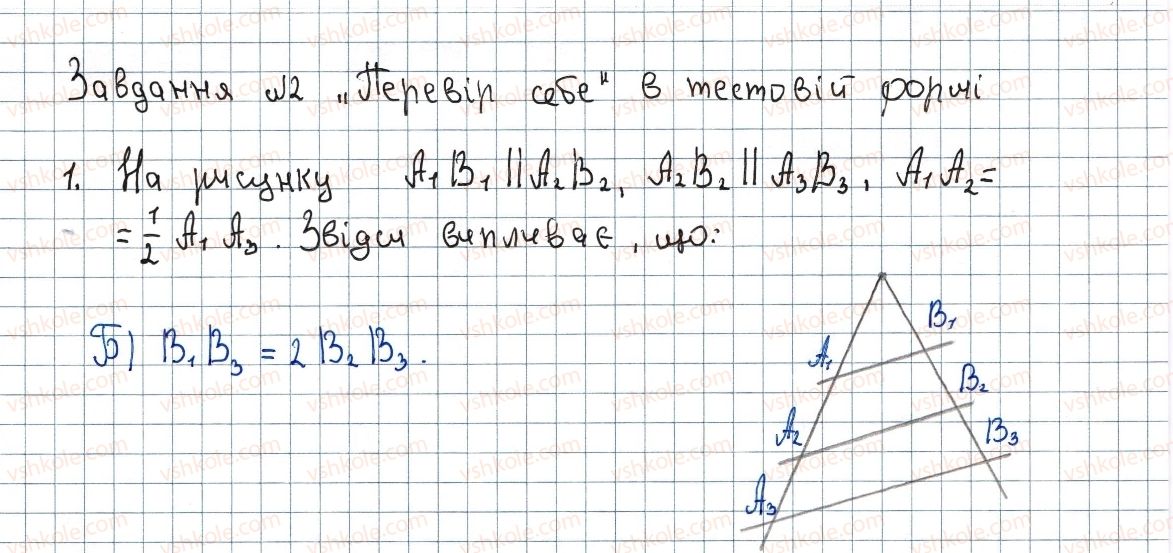 Завдання №2 „Перевір себе" в тестовій формі
1. На рисунку A₁B₁ || A₂B₂, A₂B₂ || A₃B₃, A₁A₂=
= 1/2 A₁A₃. Звідси випливає, що:
Б) B₁B₃ = 2B₂B₃.
B₁
A₁
B₂
A₂
B₃
A₃
vshkole.com